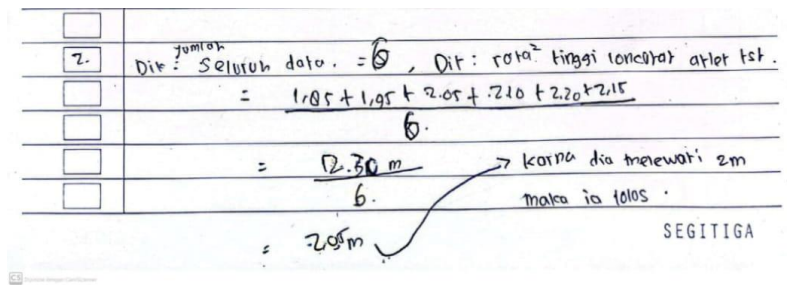 2. Dik : jumlah seluruh data. = 6 , Dit : rata² tinggi loncatan atlet tst.
= 1,85 + 1,95 + 2.05 + .210 + 2.20 + 2,15
6.
= 12.30 m → karna dia melewati 2m
6. maka ia lolos .
= 2,05m
SEGITIGA
CS